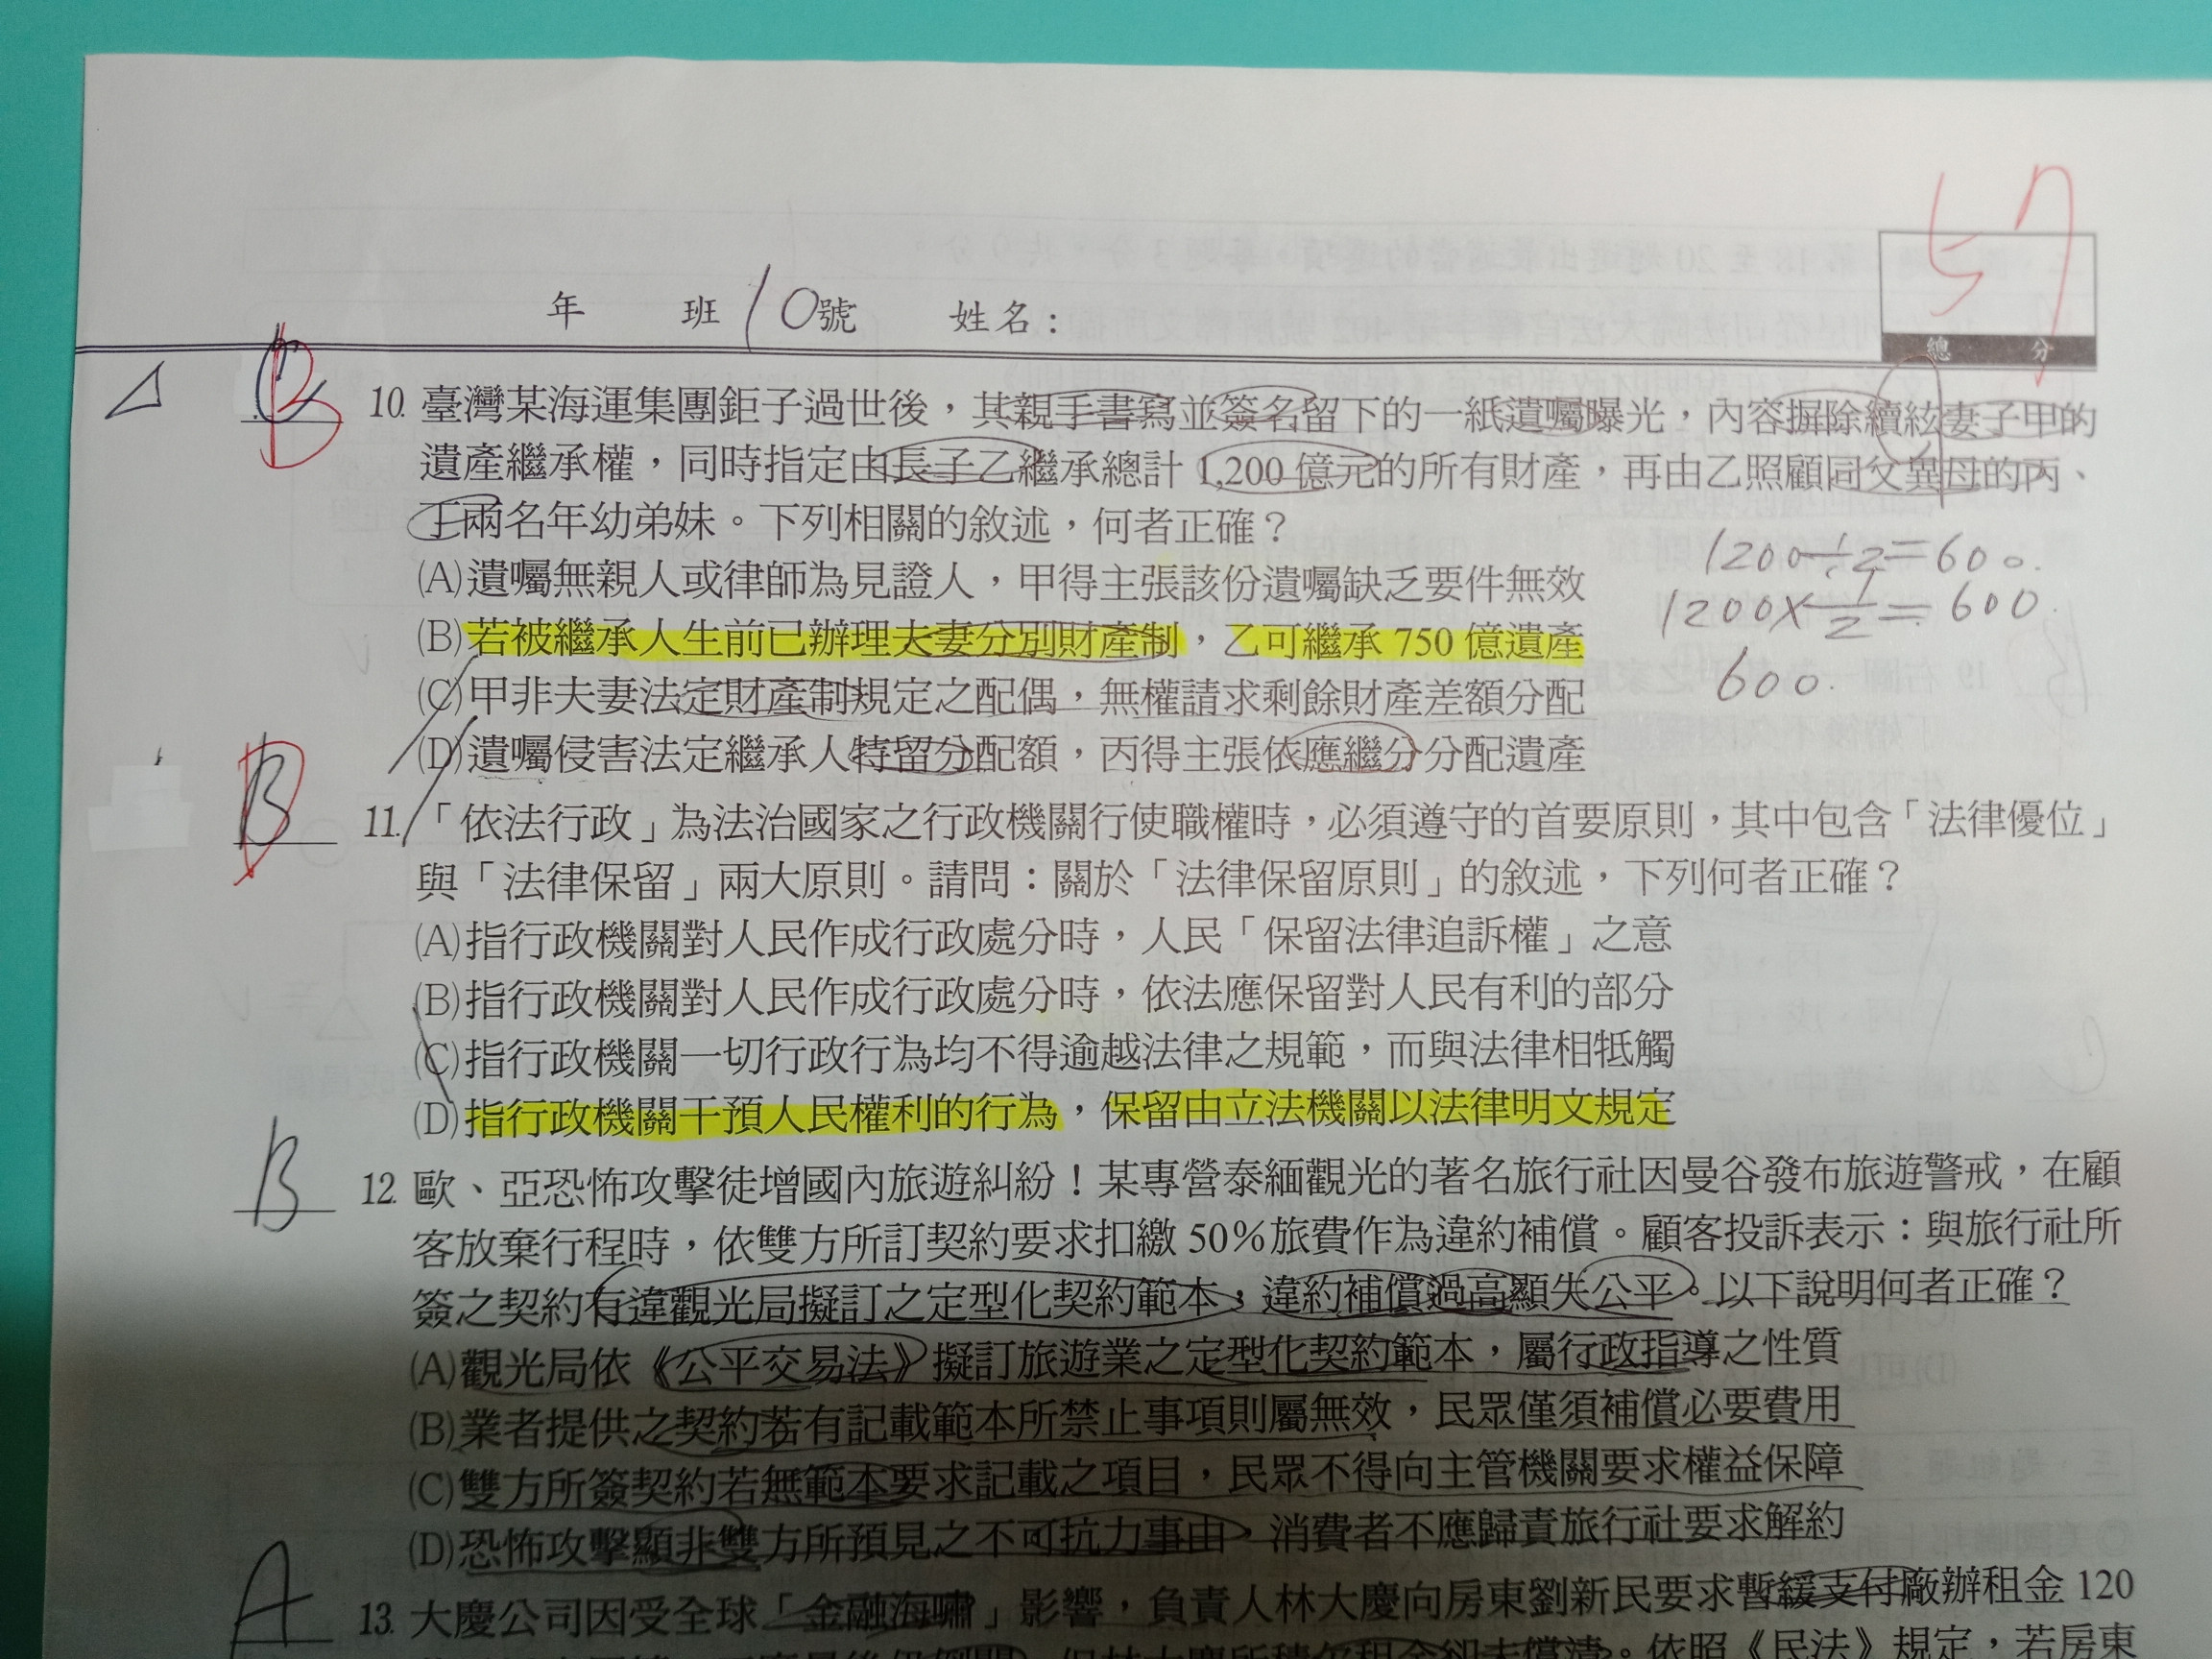 57
年 班 10號 姓名：
總 分
B 10. 臺灣某海運集團鉅子過世後，其親手書寫並簽名留下的一紙遺囑曝光，內容摒除續絃妻子甲的
遺產繼承權，同時指定由長子乙繼承總計 1,200 億元的所有財產，再由乙照顧同父異母的丙、
丁兩名年幼弟妹。下列相關的敘述，何者正確？
(A)遺囑無親人或律師為見證人，甲得主張該份遺囑缺乏要件無效
(B)若被繼承人生前已辦理夫妻分別財產制，乙可繼承 750 億遺產
(C)甲非夫妻法定財產制規定之配偶，無權請求剩餘財產差額分配
(D)遺囑侵害法定繼承人特留分配額，丙得主張依應繼分分配遺產
1200÷2=600.
1200×1/2=600.
600.
B 11. 「依法行政」為法治國家之行政機關行使職權時，必須遵守的首要原則，其中包含「法律優位」
與「法律保留」兩大原則。請問：關於「法律保留原則」的敘述，下列何者正確？
(A)指行政機關對人民作成行政處分時，人民「保留法律追訴權」之意
(B)指行政機關對人民作成行政處分時，依法應保留對人民有利的部分
(C)指行政機關一切行政行為均不得逾越法律之規範，而與法律相牴觸
(D)指行政機關干預人民權利的行為，保留由立法機關以法律明文規定
B 12. 歐、亞恐怖攻擊徒增國內旅遊糾紛！某專營泰緬觀光的著名旅行社因曼谷發布旅遊警戒，在顧
客放棄行程時，依雙方所訂契約要求扣繳 50%旅費作為違約補償。顧客投訴表示：與旅行社所
簽之契約有違觀光局擬訂之定型化契約範本，違約補償過高顯失公平。以下說明何者正確？
(A)觀光局依《公平交易法》擬訂旅遊業之定型化契約範本，屬行政指導之性質
(B)業者提供之契約若有記載範本所禁止事項則屬無效，民眾僅須補償必要費用
(C)雙方所簽契約若無範本要求記載之項目，民眾不得向主管機關要求權益保障
(D)恐怖攻擊顯非雙方所預見之不可抗力事由，消費者不應歸責旅行社要求解約
A 13. 大慶公司因受全球「金融海嘯」影響，負責人林大慶向房東劉新民要求暫緩支付廠辦租金 120
依照《民法》規定，若房東